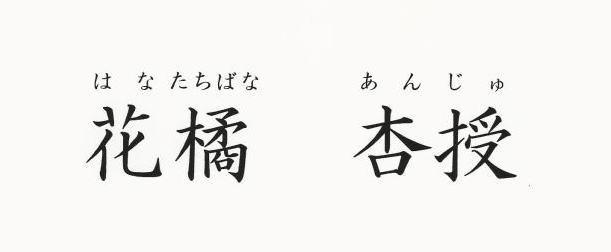 はなたちばな あんじゅ
花橘 杏授